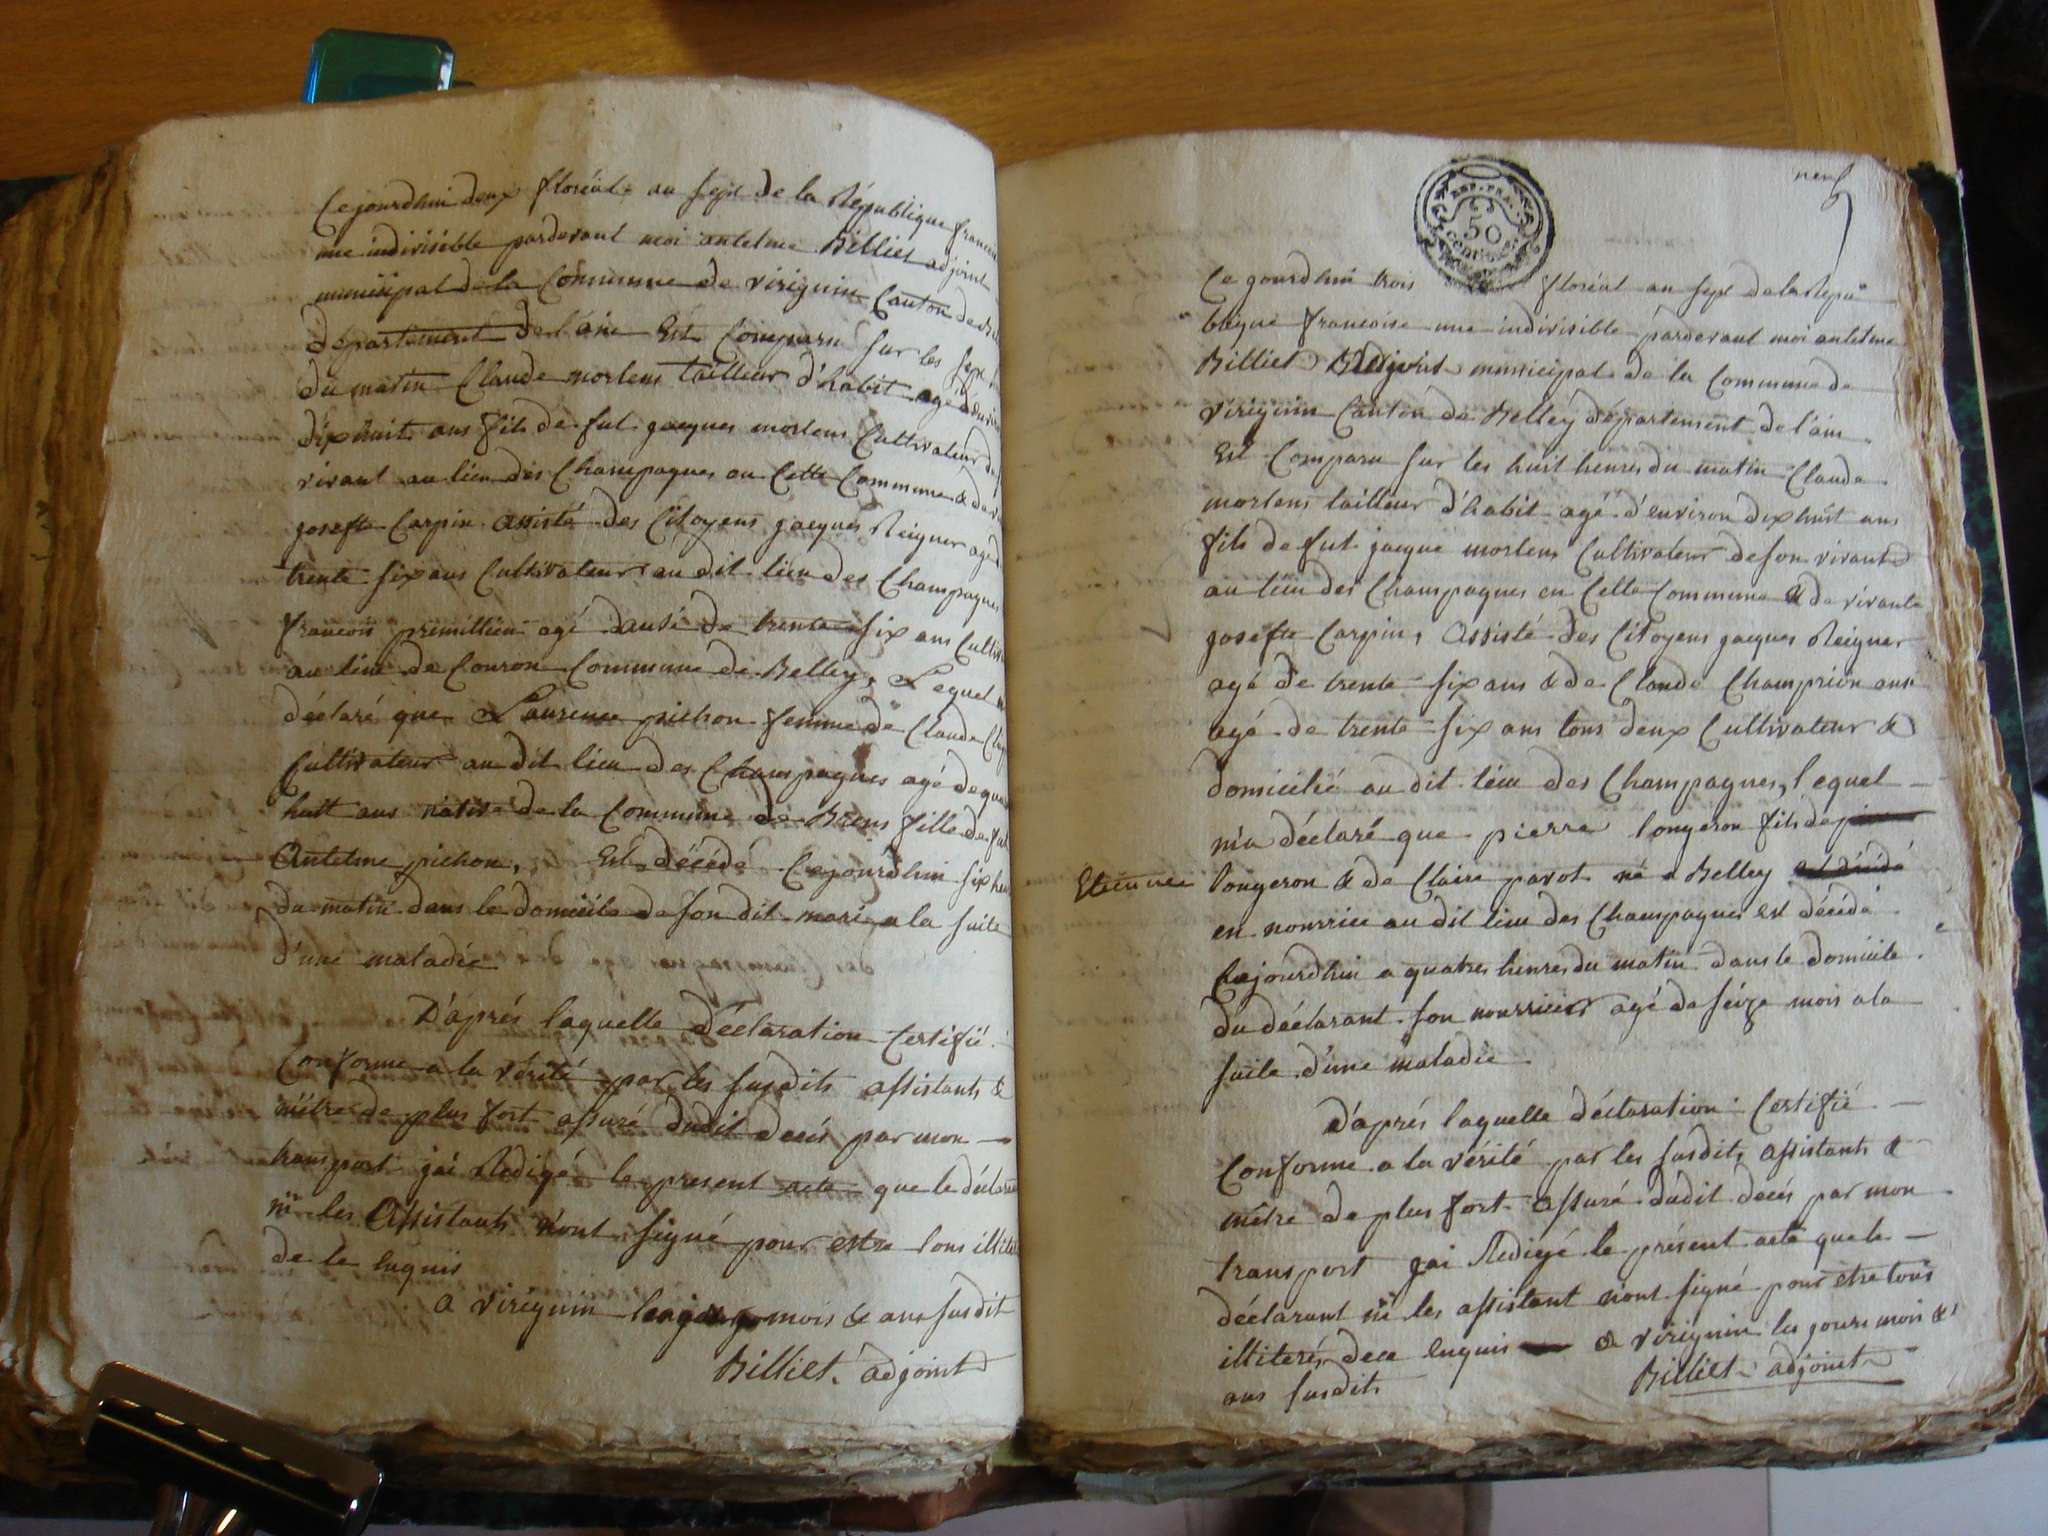 Cejourdhui deux floréal an sept de la République francoi
une indivisible pardevant moi antelme Billiet adjoint
municipal de la Commune de virignin Canton de
département de l'ain Est Comparu sur les sept
du matin Claude morlens tailleur d'habit agé d'envi
dixhuit ans fils de fut jacques morlens Cultivateur de
vivant au lieu des Champagnes en Cette Commune & de
josefte Carpin assisté des Citoyens jacques Reigner agé
trente six ans Cultivateur au dit lieu des Champagnes
francois primillieu agé aussi de trente six ans Cultiv
au lieu de Couron Commune de Belley, Lequel
déclaré que Laurence pichon femme de Claude
Cultivateur au dit lieu des Champagnes agé de
huit ans native de la Commune de Brens fille de fut
Antelme pichon, Est décédé Cejourdhui six heu
du matin dans le domicile de son dit mari a la suite
d'une maladie
D'aprés laquelle déclaration Certifié
Conforme a la vérité par les susdits assistants &
m'étre de plus fort assuré dudit decés par mon
transport jai Redigé le present acte que le déclara
ni les Assistants n'ont signé pour estre tous illité
de le enquis
a virignin les mois & ans susdit
Billiet adjoint
neuf
REP. FRA.
50
CENTIMES
Ce gourdhui trois floréal an sept de la Repu
blique francoise une indivisible pardevant moi antelme
Billiet adjoint municipal de la Commune de
virignin Canton de Belley département de l'ain
Est Comparu sur les huit heures du matin Claude
morlens tailleur d'habit agé d'environ dix huit ans
fils de fut jacque morlens Cultivateur de son vivant
au lieu des Champagnes en Cette Commune & de vivante
josefte Carpin, Assisté des Citoyens jacques Reigner
agé de trente six ans & de Claude Champrion
agé de trente six ans tous deux Cultivateur &
domicilié au dit lieu des Champagnes, lequel
m'a déclaré que pierre longeron fils de
Etienne longeron & de Claire pavot né a Belley est décédé
en nourrice au dit lieu des Champagnes est décédé
Cejourdhui a quatres heures du matin dans le domicile
du déclarant son nourricier agé de seize mois a la
suite d'une maladie
D'aprés laquelle déclaration Certifié
Conforme a la vérité par les susdits assistants &
m'étre de plus fort assuré dudit decés par mon
transport jai Redigé le présent acte que le
déclarant ni les assistant n'ont signé pour etre tous
illiterés de ce enquis a virignin les jours mois &
ans susdits
Billiet adjoint